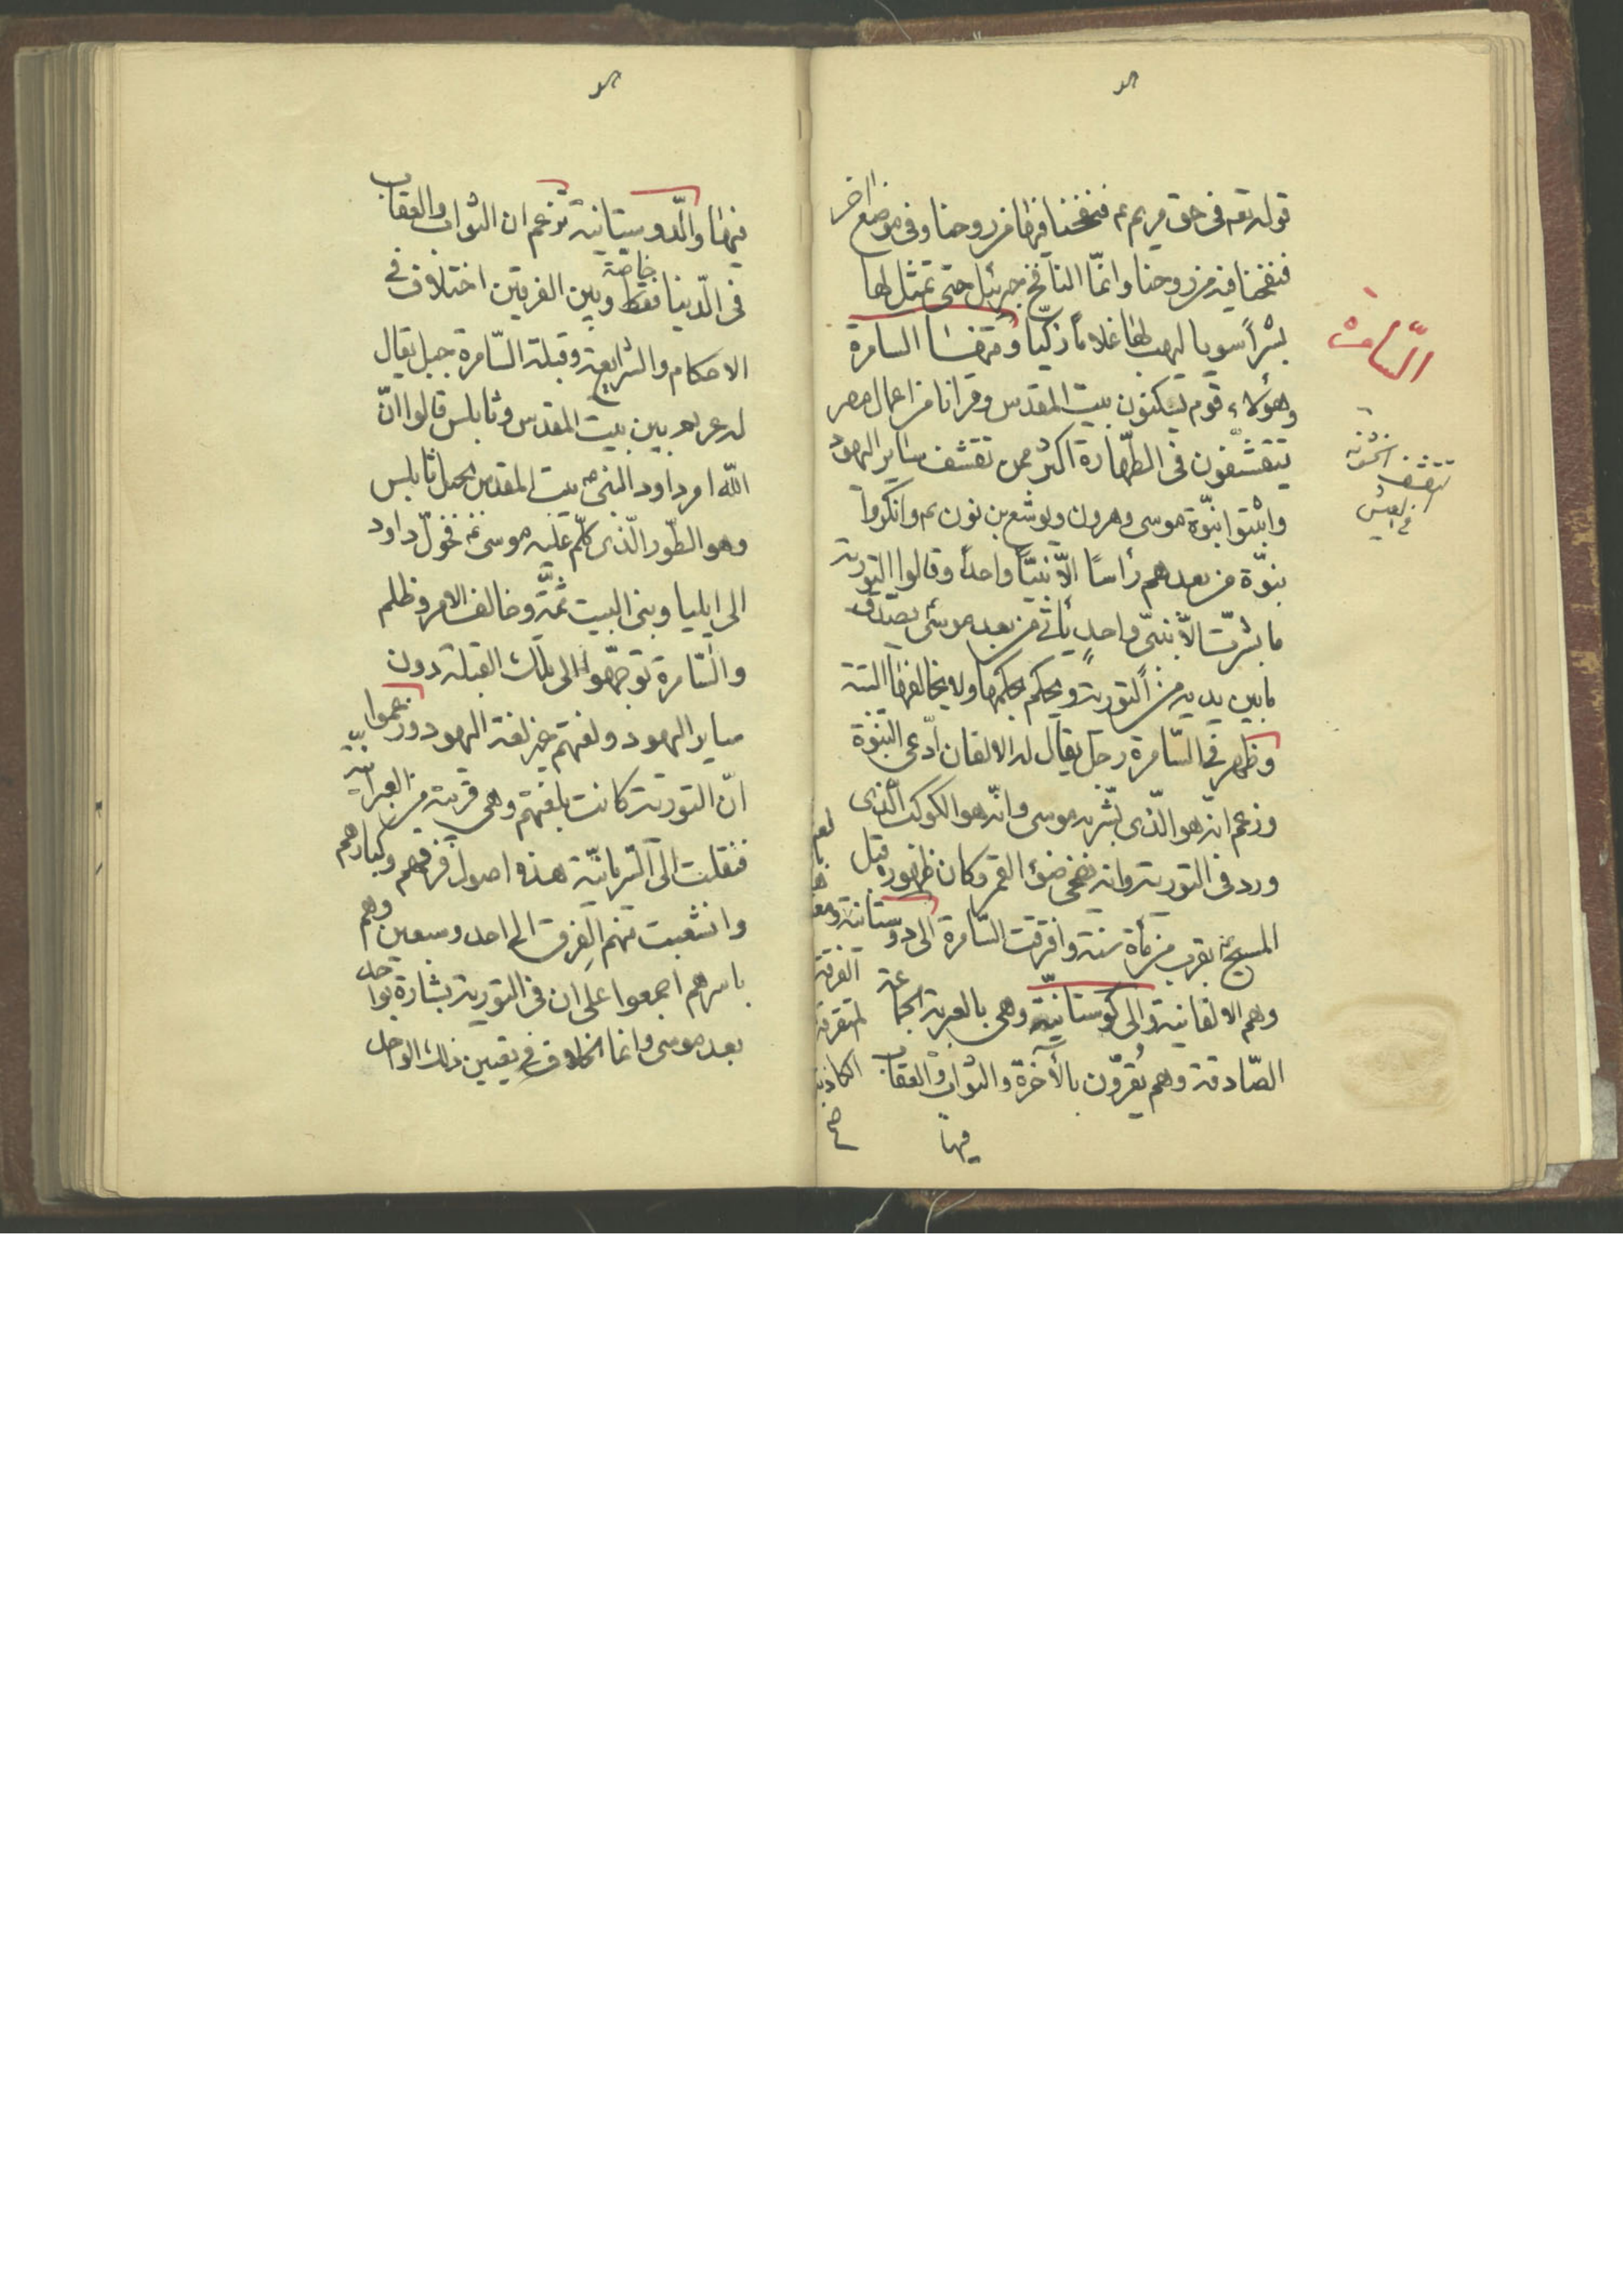 قوله تعه فى حق مريم عم فنفخنا فيها من روحنا وفى موضع اخر
فنفخنا فيه من روحنا وانمّا النافخ جبرئيل حتى تمثل لها
بشراً سويا ليهب لها غلاماً زكيّا ومنهنا السامرة
وهؤلاء قوم يسكنون بيت المقدس وقرانا من اعمال مصر
يتقشفون فى الطّهارة اكثر من تقشف ساير اليهود
واثبتوا نبوّة موسى وهرون ويوشع بن نون عم وانكروا
بنوّة من بعدهم رأسًا الّا نبيّاً واحداً وقالوا التورية
ما بشرت الّا بنبىّ واحدٍ يأتى من بعد موسى يصدق
ما بين يديه من التورية ويحكم بحكمها ولا يخالفها البتة
وظهر فى السّامرة رجل يقال له الالفان ادّعى النبوّة
وزعم انه هو الّذى بشّر به موسى وانّه هو الكوكب الّذى
ورد فى التورية وانه يضئ ضئ القمر وكان ظهوره قبل
المسيح بقرب من مأة سنة وافترقت السّامرة الى دوستانية
وهم الالفانية والى كوستانيّة وهى بالعربية الجماعة
الصّادقة وهم يقرّون بالأخرة والثواب والعقاب
فيها
السّامرة
تقشف
الفرقة
المتفرقة
الكاذبة
صح
فيها والّدوستانية تزعم ان الثواب والعقاب
فى الّدينا فقط وبين الفريقين اختلاف فى
خاصّة
الاحكام والشرايع وقبلة السّامرة جبل يقال
له عريعر بين بيت المقدس ونابلس قالوا انّ
اللّه امر داود النبى ص بيت المقدس بجبل نابلس
وهو الطّور الّذى كلّم عليه موسى عم فخوّل داود
الى ايليا وبنى البيت ثمّة وخالف الامر وظلم
والسّامرة توجّهوا الى تلك القبلة دون
ساير اليهود ولغتهم غير لغة اليهود وزعموا
انّ التورية كانت بلغتهم وهى قريبة من العبرانيّة
فنقلت الى السّريانيّة هذه اصول فرقهم وكبارهم
وانشعبت منهم الفرق الى احد وسبعين وهم
باسرهم اجمعوا على ان فى التورية بشارة بواحد
بعد موسى وانما الخلاف فى تعيين ذلك الواحد